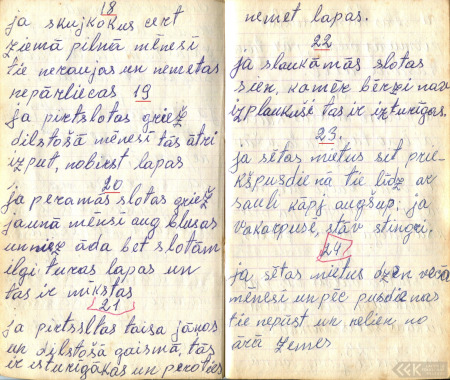 18
ja skujkokus cert
ziemā pilnā mēnesī
tie neraujas un nemetas
nepārliecas 19
ja pirtslotas griež
dilstošā mēnesī tās ātri
izput, nobirst lapas
20
ja peramās slotas griež
jaunā mēnsī aug blusas
un niez āda bet slotām
ilgi turas lapas un
tas ir mīkstas
21
ja pirtssltas taisa jāņos
un dilstošā gaismā, tās
ir isturīgākas un
nemet lapas.
22
ja slaukāmās slotas
sien, kamēr bērzi nav
izplaukuši tas ir izturīgas.
23.
ja sētas mietus sit prie-
kšpusdienā tie līdz ar
sauli kāpj augšup; ja
vakarpuse, stāv stingri.
24
ja, sētas mietus dzen vecā
mēnesī un pēc pusdienas
tie nepūst un neliek no
ārā zemes